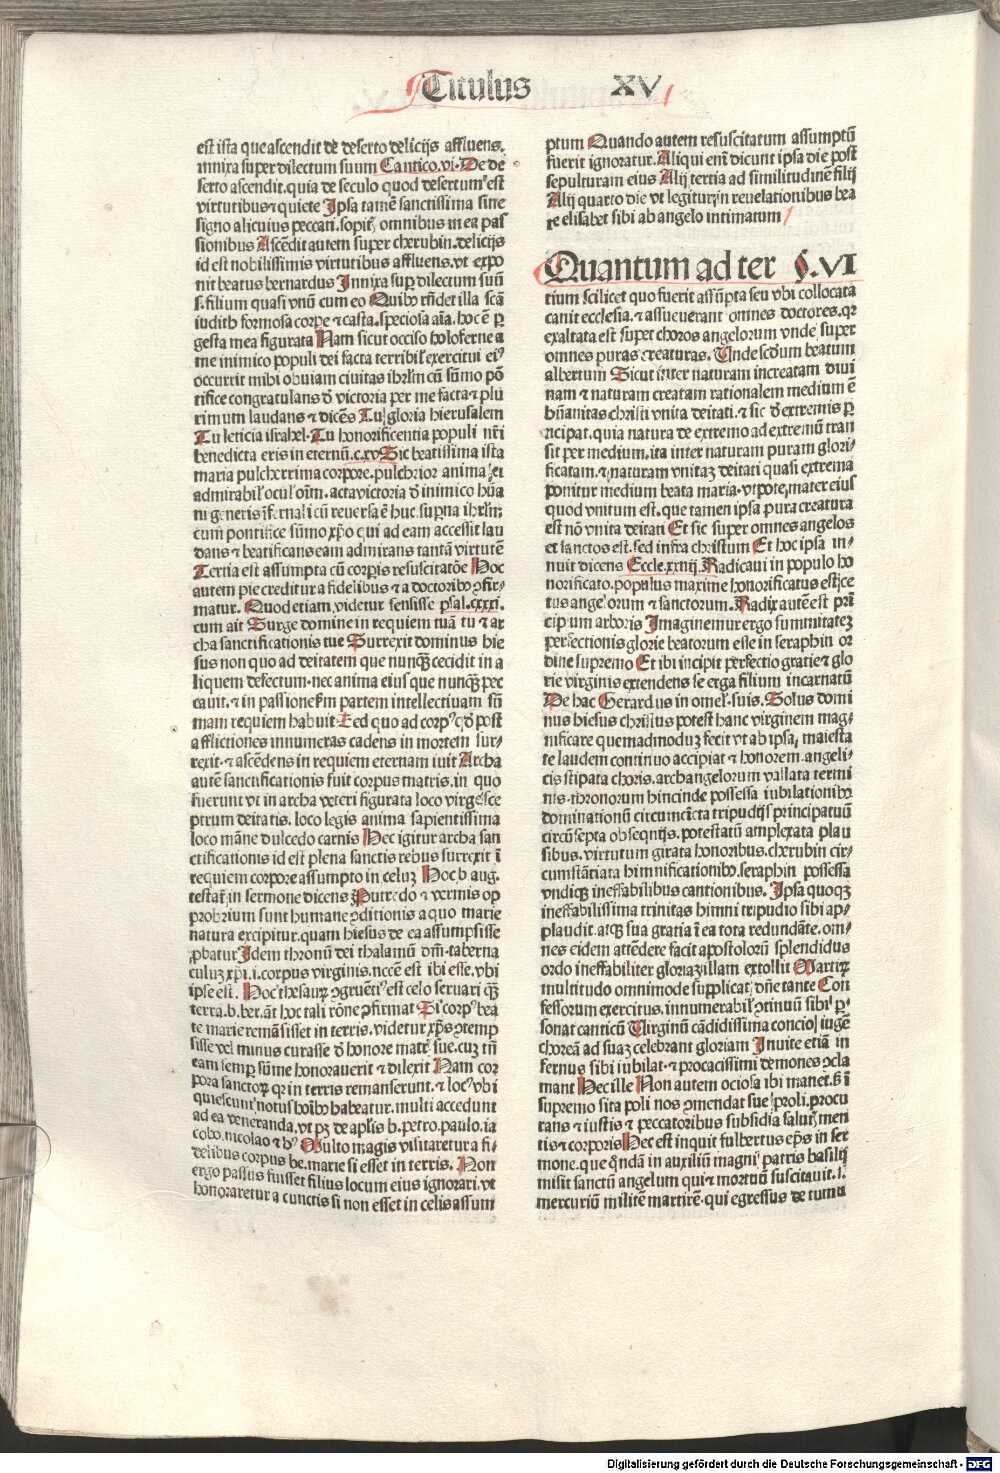 Titulus XV
est ista que ascendit de deserto delicijs affluens.
innixa super dilectum suum Cantico.vi. De de
serto ascendit.quia de seculo quod desertum est
virtutibus ⁊ quiete Ipsa tamē sanctissima sine
signo alicuius peccati. sopitꝭ omnibus in ea pas
sionibus Ascēdit autem super cherubin.delicijs
id est nobilissimis virtutibus affluens.vt expo
nit beatus bernardus Innixa suꝑ dilectum suū
.s.filium quasi vnū cum eo Quibꝰ rn̄det illa scā
iudith formosa corpe ⁊ casta.speciosa aīa.hoc ē ꝑ
gesta mea figurata Nam sicut occiso holoferne a
me inimico populi dei facta terribil' exercitui eiꝰ
occurrit mihi obuiam ciuitas ihrlm̄ cū sūmo pō
tifice congratulans ꝺ victoria per me facta ⁊ plu
rimum laudans ⁊ dicēs Tu gloria hierusalem
Tu leticia israhel.Tu honorificentia populi nr̄i
benedicta eris in eternū.c.xv Sic beatissima ista
maria pulcherrima corpore.pulchrior anima ⁊ ei
admirabil' ocul' oīm. acta victoria ꝺ inimico hūa
ni generis īfernali cū reuersa ē huc.supna ihrlm̄
cum pontifice sūmo xp̄o qui ad eam accessit lau
dans ⁊ beatificans eam admirans tantā virtutē
Tertia est assumpta cū corpis resuscitatōe Hoc
autem pie creditur a fidelibus ⁊ a doctoribꝰ ꝯfir-
matur. Quod etiam videtur sensisse psal.cxxxi.
cum ait Surge domine in requiem tuā tu ⁊ ar
cha sanctificationis tue Surrexit dominus hie
sus non quo ad deitatem que nunq̄ȝ cecidit in a
liquem defectum.nec anima eius que nunq̄ȝ pec
cauit.⁊ in passione s'm partem intellectiuam sū
mam requiem habuit Sed quo ad corpꝰ qd' post
afflictiones innumeras cadens in mortem sur-
rexit.⁊ ascēdens in requiem eternam iuit Archa
autē sanctificationis fuit corpus matris.in quo
fuerunt vt in archa veteri figurata loco virge sce
ptrum deitatis. loco legis anima sapientissima
loco māne dulcedo carnis Hec igitur archa san
ctificationis id est plena sanctis rebus surrexit ī
requiem corpore assumpto in celuȝ Hoc b.aug.
testat in sermone dicens Putredo ⁊ vermis op
probrium sunt humane ꝯditionis a quo marie
natura excipitur.quam hiesus de ea assumpsisse
ꝓbatur Idem thronū dei thalamū dn̄i.taberna
culuȝ xp̄i.i.corpus virginis.nccē est ibi esse.vbi
ipse est. Hoc thesaurꝰ ꝯgruētiꝰ est celo seruari q̄ȝ
terra.b.ber.āt hoc tali rōne ꝯfirmat Si corpꝰ bea
te marie remāsisset in terris.videtur xp̄s ꝯtemp
sisse vel minus curasse ꝺ honore matrꝭ sue.cuȝ tn̄
eam semp sūme honorauerit ⁊ dilexit Nam cor
pora sanctoꝝ qꝛ in terris remanserunt.⁊ locꝰ vbi
quiescunt notus hoībꝰ habeatur.multi accedunt
ad ea veneranda.vt pȝ de aplis b.petro.paulo.ia
cobo.nicolao ⁊ bꝰ Multo magis visitaretur a fi-
delibus corpus be.marie si esset in terris. Non
ergo passus fuisset filius locum eius ignorari.vt
honoraretur a cunctis si non esset in celis assum
ptum Quando autem resuscitatum assumptū
fuerit ignoratur. Aliqui enī dicunt ipsa die post
sepulturam eius Alij tertia ad similitudinē filij
Alij quarto die vt legitur in reuelationibus bea
te elisabet sibi ab angelo intimatum
Quantum ad ter §.VI
tium scilicet quo fuerit assūpta seu vbi collocata
canit ecclesia.⁊ asseuerant omnes doctores.qꝛ
exaltata est super choros angelorum vnde super
omnes puras creaturas. Unde scdum beatum
albertum Sicut inter naturam increatam diui
nam ⁊ naturam creatam rationalem medium ē
hūanitas christi vnita deitati.⁊ sic ꝺ extremis ꝑ
ticipat.quia natura de extremo ad extremū tran
sit per medium.ita inter naturam puram glori-
ficatam.⁊ naturam vnitaȝ deitati quasi extrema
ponitur medium beata maria.vtpote mater eius
quod vnitum est.que tamen ipsa pura creatura
est nō vnita deitati Et sic super omnes angelos
et sanctos est.sed infra christum Et hoc ipsa in-
nuit dicens Eccle.xxiiij. Radicaui in populo ho
norificato.populus maxime honorificatus est ce
tus angelorum ⁊ sanctorum. Radix autē est prī
cipium arboris Imaginemur ergo summitateȝ
perfectionis glorie beatorum esse in seraphin or
dine supremo Et ibi incipit perfectio gratie ⁊ glo
rie virginis extendens se erga filium incarnatū
De hac Gerardus in omel'.suis. Solus domi
nus hiesus christus potest hanc virginem mag-
nificare quemadmoduȝ fecit vt ab ipsa maiesta
te laudem continuo accipiat ⁊ honorem.angeli-
cis stipata choris.archangelorum vallata termi
nis.thronorum hincinde possessa iubilationibꝰ
dominationū circumcīcta tripudijs principatuū
circūsepta obsequijs.potestatū amplexata plau
sibus.virtutum girata honoribus.cherubin cir-
cumstātiata himnificationibꝰ.seraphin possessa
vndiqȝ ineffabilibus cantionibus. Ipsa quoqȝ
ineffabilissima trinitas himni tripudio sibi ap-
plaudit.atqȝ sua gratia ī ea tota redundāte.om-
nes eidem attēdere facit apostolorū splendidus
ordo ineffabiliter gloriaȝ illam extollit Martirꝝ
multitudo omnimode supplicat dn̄e tante Con
fessorum exercitus.innumerabil' ꝯtinuū sibi ꝑ-
sonat canticū Uirginū cādidissima concio iugē
choreā ad suaȝ celebrant gloriam Inuite etiā in
fernus sibi iubilat.⁊ procacissimi demones ꝯcla
mant Hec ille Non autem ociosa ibi manet.sȝ ī
supremo sita poli nos ꝯmendat sue proli.procu
rans ⁊ iustis ⁊ peccatoribus subsidia salutꝭ men
tis ⁊ corporis Hec est inquit fulbertus ep̄s in ser
mone.que qn̄dā in auxiliū magni patris basilij
misit sanctū angelum qui ⁊ mortuū suscitauit.i.
mercuriū militē martirē.qui egressus de tumu